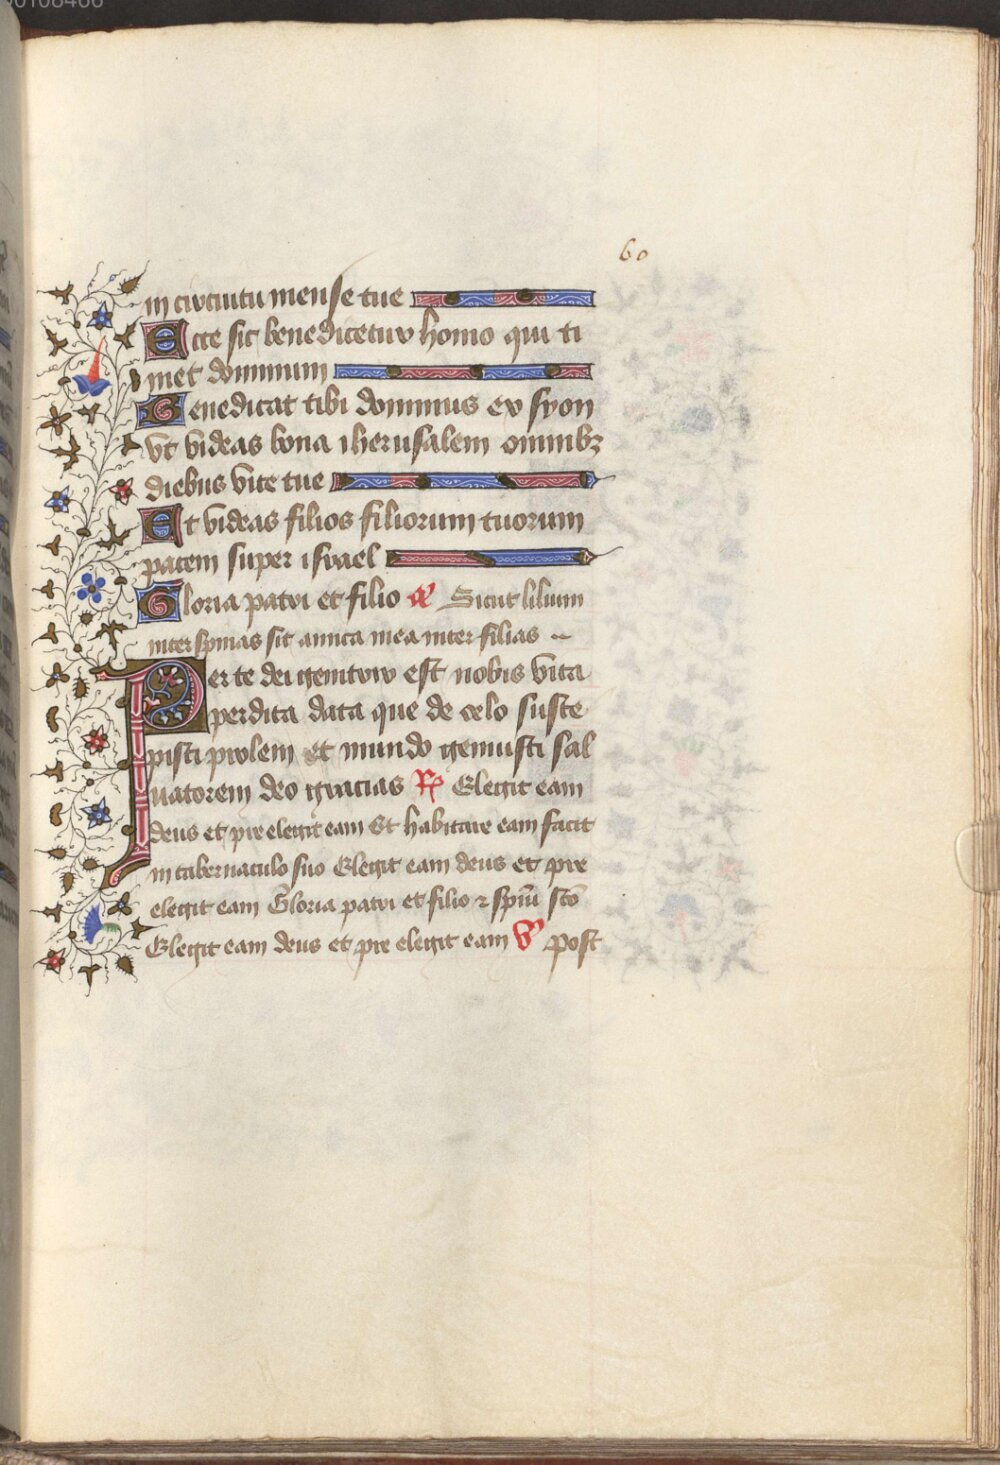 00108466
60
in circuitu mense tue
Ecce sic benedicetur homo qui ti
met dominum
Benedicat tibi dominus ex syon
vt videas bona iherusalem omnibꝫ
diebus vite tue
Et videas filios filiorum tuorum
pacem super israel
Gloria patri et filio Sicut lilium
inter spinas sic amica mea inter filias
Per te dei genitrix est nobis vita
perdita data que de celo susce
pisti prolem et mundo genuisti sal
uatorem deo gracias ℟ Elegit eam
deus et pre elegit eam Et habitare eam facit
in tabernaculo suo Elegit eam deus et pre
elegit eam Gloria patri et filio ⁊ spiū sc̄o
Elegit eam deus et pre elegit eam ℣ post